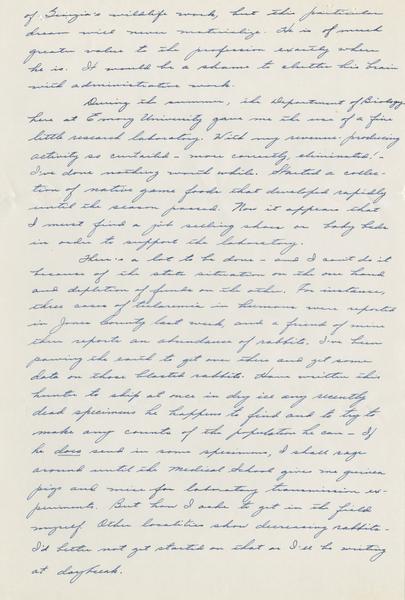 of Georgia's wildlife work, but this particular
dream will never materialize. He is of much
greater value to the profession exactly where
he is. It would be a shame to clutter his brain
with administrative work.
During the summer, the Department of Biology
here at Emory University gave me the use of a fine
little research laboratory. With my revenue-producing
activity so curtailed - more correctly, eliminated! -
I've done nothing worth while. Started a collec-
tion of native game foods that developed rapidly
until the season passed. Now it appears that
I must find a job selling shoes or baby
in order to support the laboratory.
There's a lot to be done - and I can't do it
because of the state situation on the one hand
and depletion of funds on the other. For instance,
three cases of tularemia in humans were reported
in Jones County last week, and a friend of mine
there reports an abundance of rabbits. I've been
pawing the earth to get over there and get some
data on those blasted rabbits. Have written this
hunter to ship at once in dry ice any recently
dead specimens he happens to find and to try to
make any counts of the population he can - If
he does send in some specimens, I shall rage
around until the Medical School gives me guinea
pigs and mice for laboratory transmission ex-
periments. But how I ache to get in the field
myself. Other localities show decreasing rabbits -
I'd better not get started on that or I'll be writing
at daybreak.